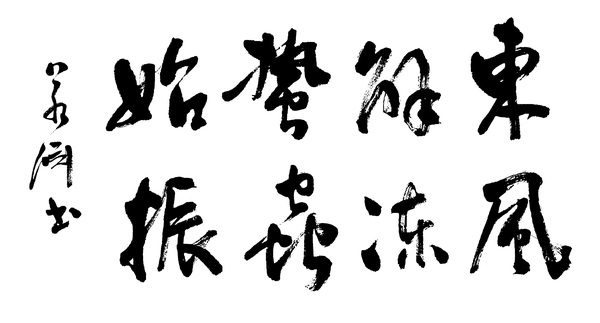 東風
解凍
蟄蟲
始振